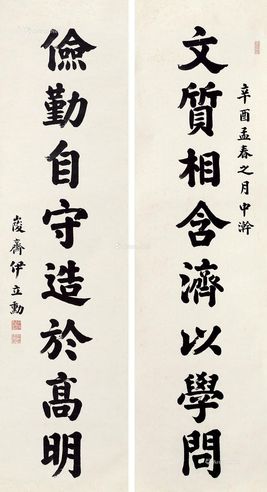 文質相含濟以學問
辛酉孟春之月中澣
儉勤自守造於高明
峻齋伊立勳